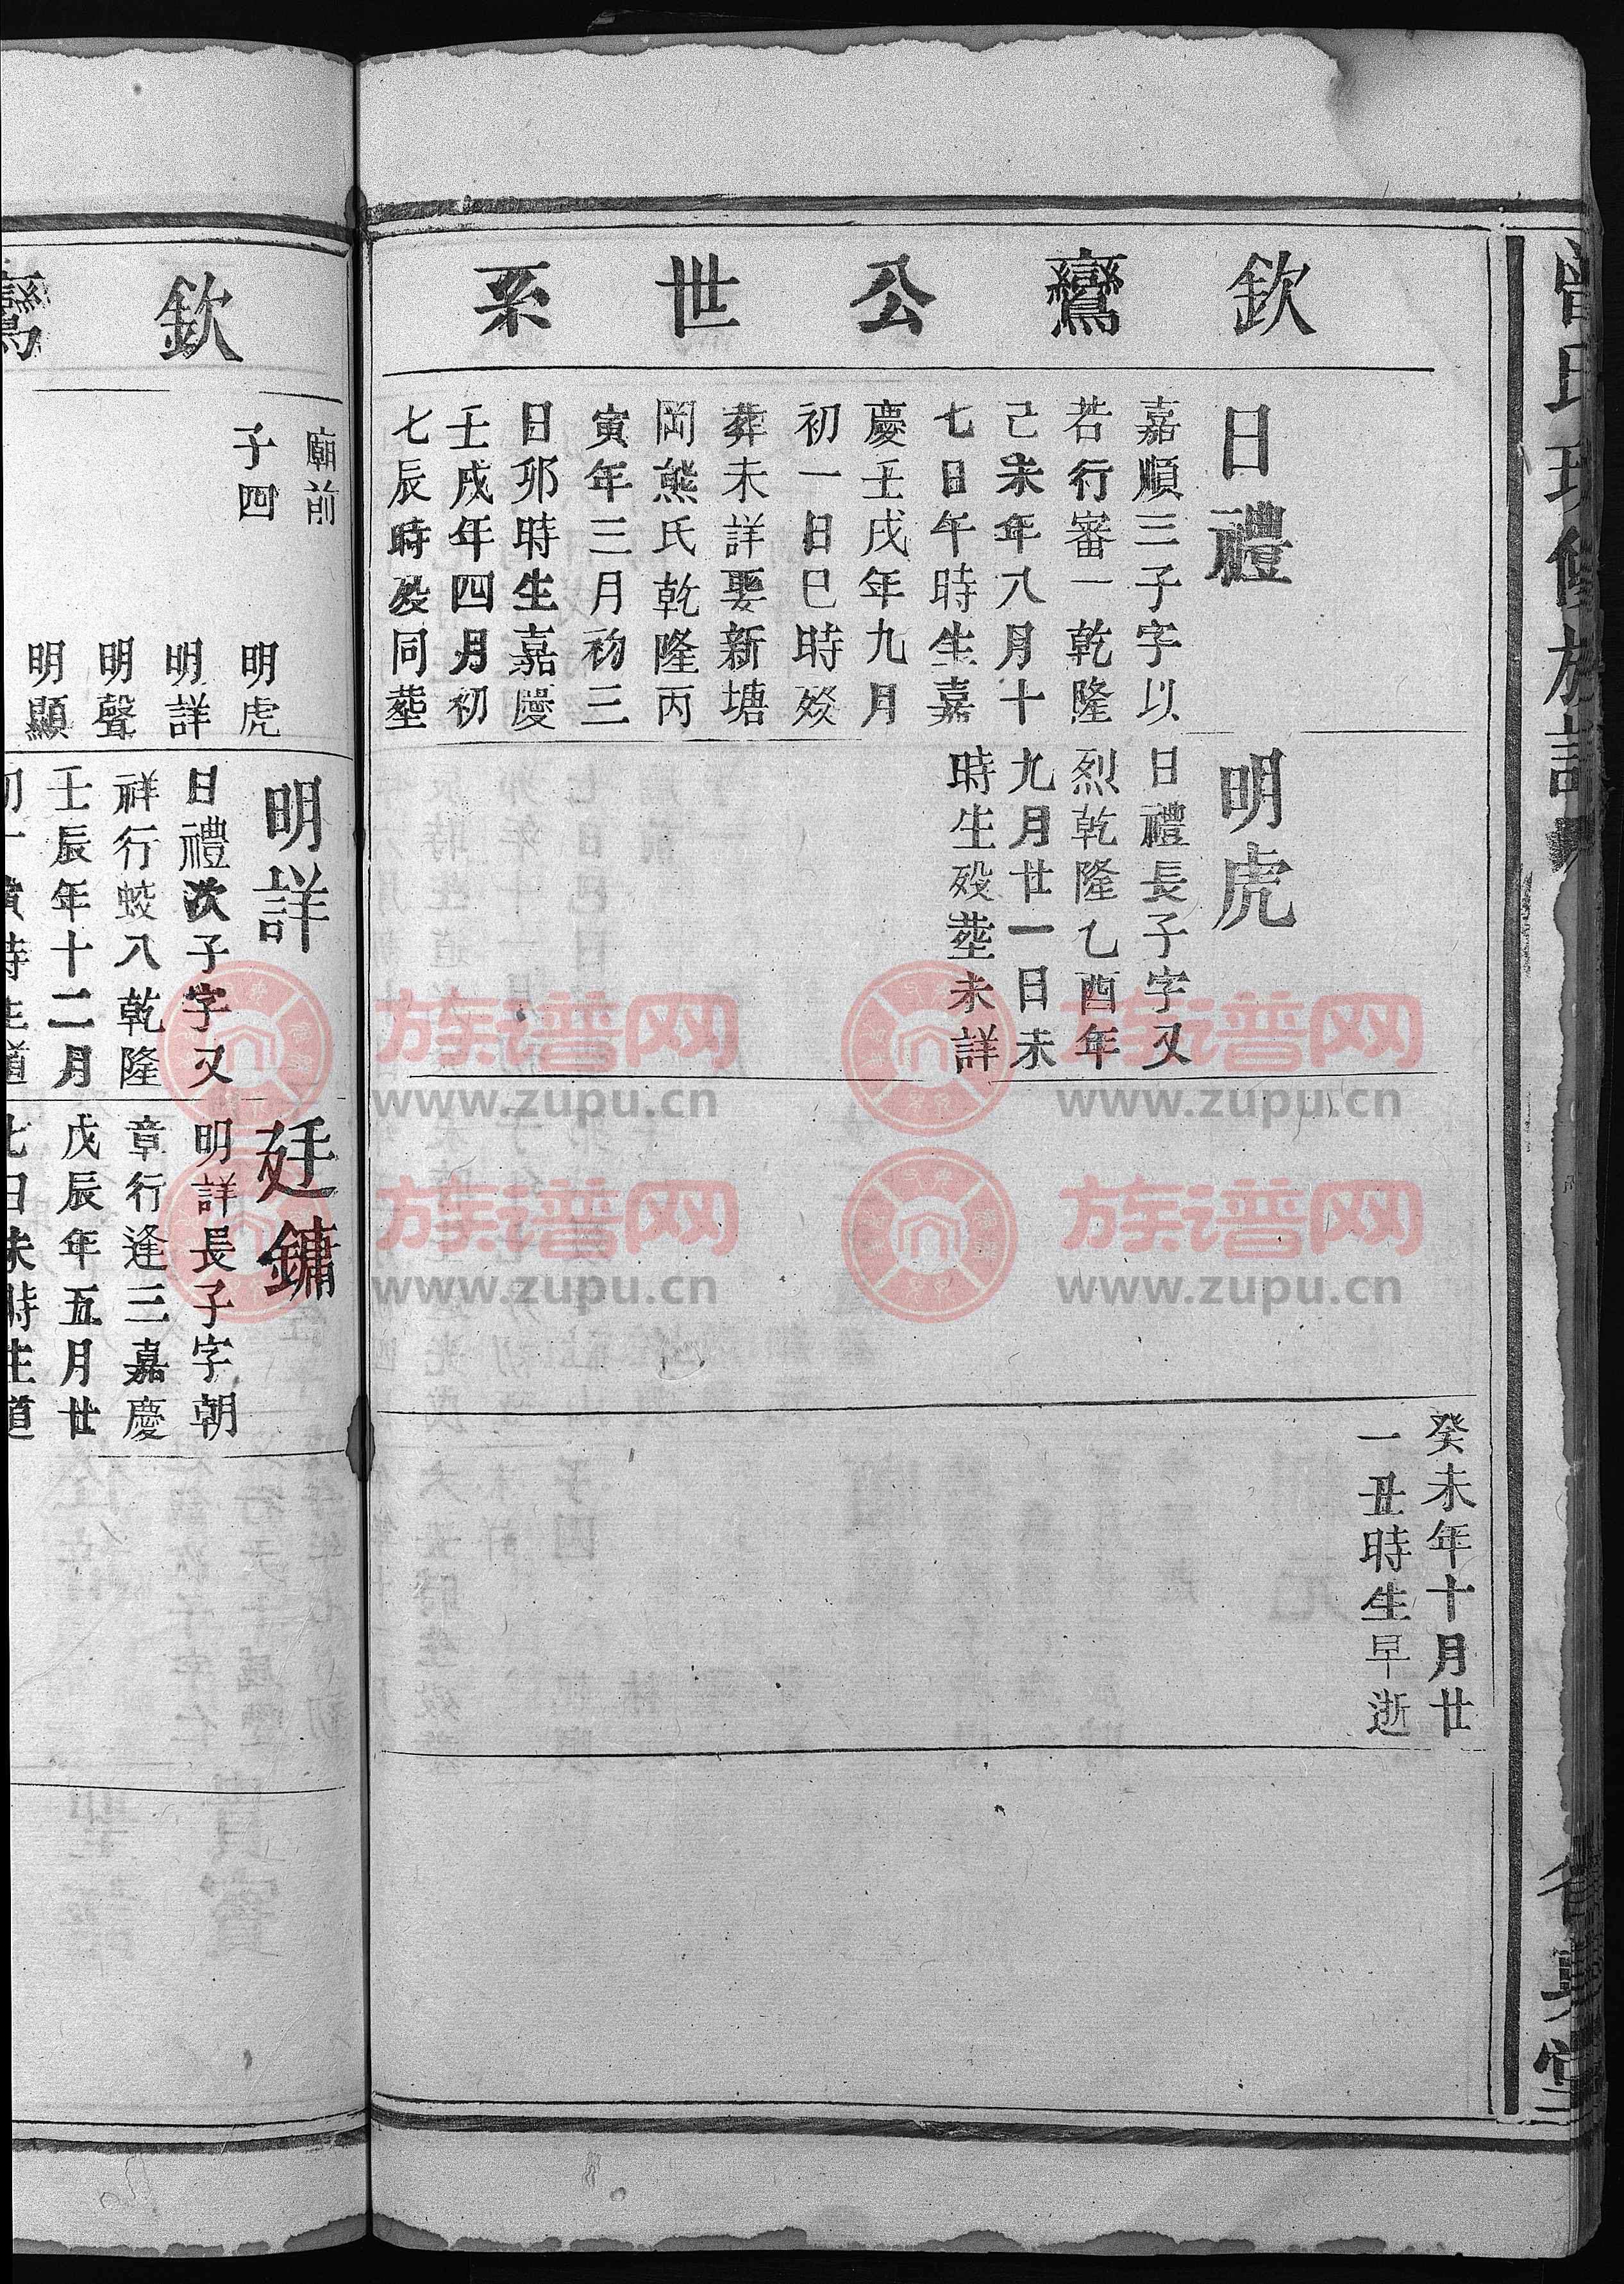 欽鸞公世系
日禮
嘉順三子字以
若行審一乾隆
己未年八月十
七日午時生嘉
慶壬戌年九月
初一日巳時歿
葬未詳娶新塘
岡熊氏乾隆丙
寅年三月初三
日卯時生嘉慶
壬戌年四月初
七辰時歿同塟
明虎
日禮長子字又
烈乾隆乙酉年
九月廿一日未
時生歿塟未詳
癸未年十月廿
一丑時生早逝
欽鸞
廟前
子四
明虎
明詳
明聲
明顯
明詳
日禮次子字又
祥行蛟八乾隆
壬辰年十二月
廷鏞
明詳長子字朝
章行逢三嘉慶
戊辰年五月廿
七日未時生道
族谱网
www.zupu.cn
族谱网
www.zupu.cn
族谱网
www.zupu.cn
族谱网
www.zupu.cn